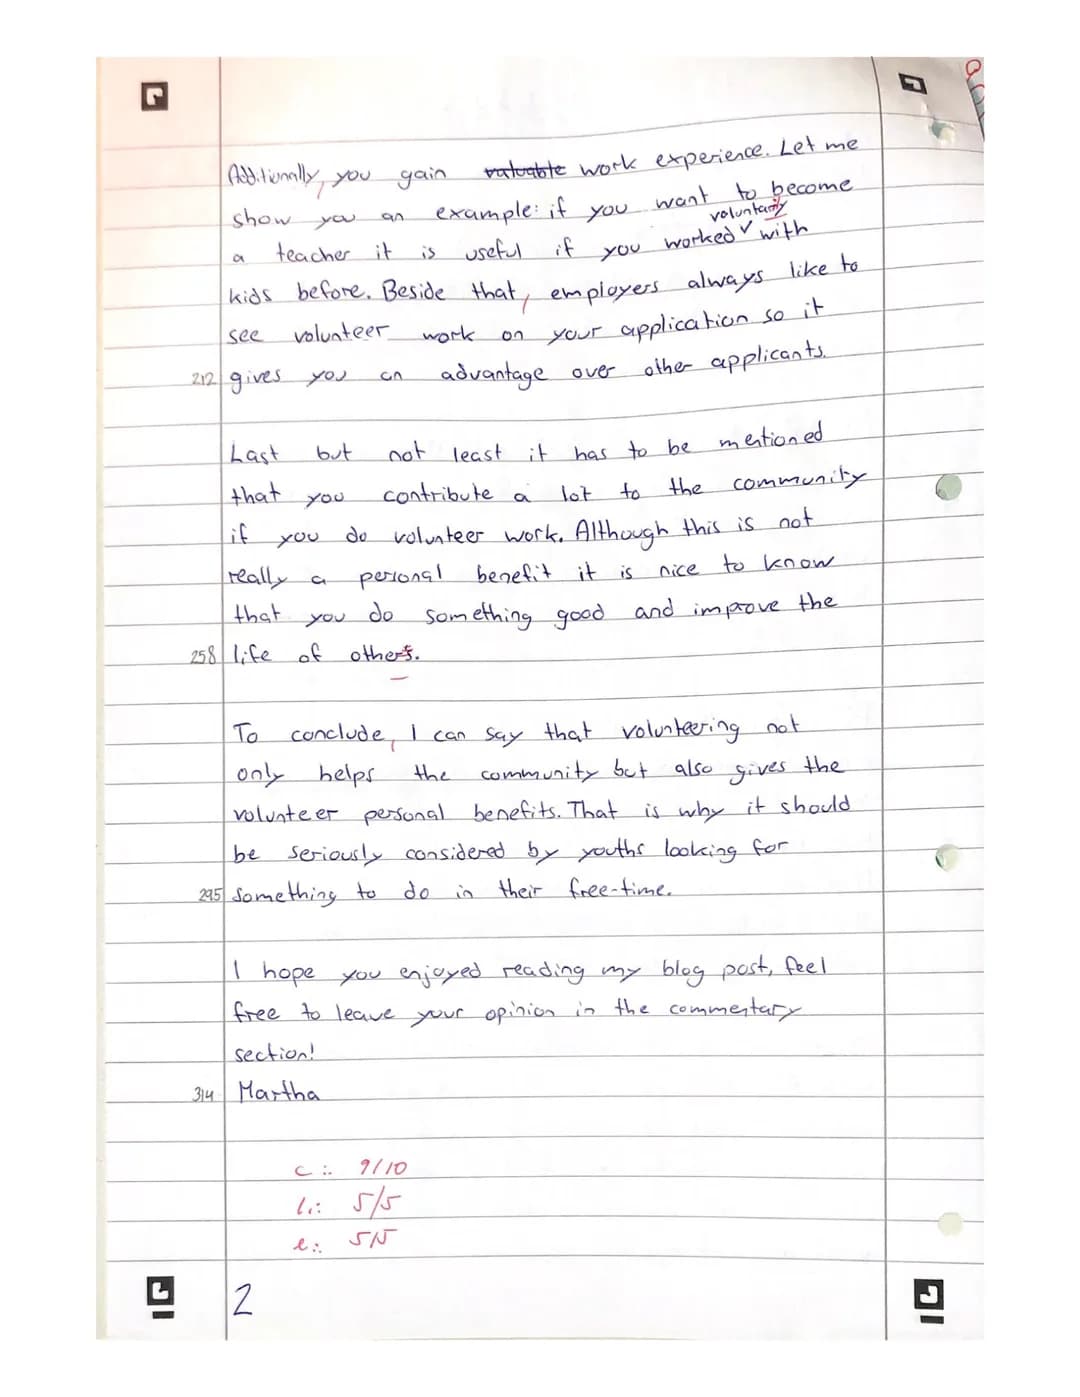 Additionally, you gain valuable work experience. Let me
show you an example: if you want to become
voluntarily
a teacher it is useful if you worked ✓ with
kids before. Beside that, employers always like to
see volunteer work on your application so it
212 gives you an advantage over other applicants.
Last but not least it has to be mentioned
that you contribute a lot to the community
if you do volunteer work. Although this is not
really a personal benefit it is nice to know
that you do something good and improve the
258 life of others.
To conclude, I can say that volunteering not
only helps the community but also gives the
volunteer personal benefits. That is why it should
be seriously considered by youths looking for
295 something to do in their free-time.
I hope you enjoyed reading my blog post, feel
free to leave your opinion in the commentary
section!
314 Martha
c.: 9/10
l.: 5/5
e.: 5/5
2